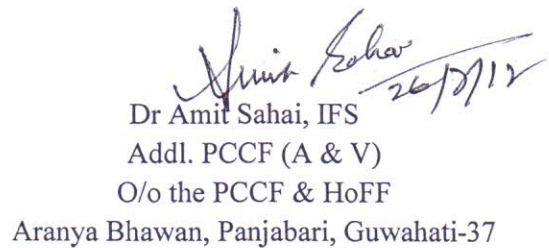 Amit Sahai
Dr Amit Sahai, IFS
Addl. PCCF (A & V)
O/o the PCCF & HoFF
Aranya Bhawan, Panjabari, Guwahati-37